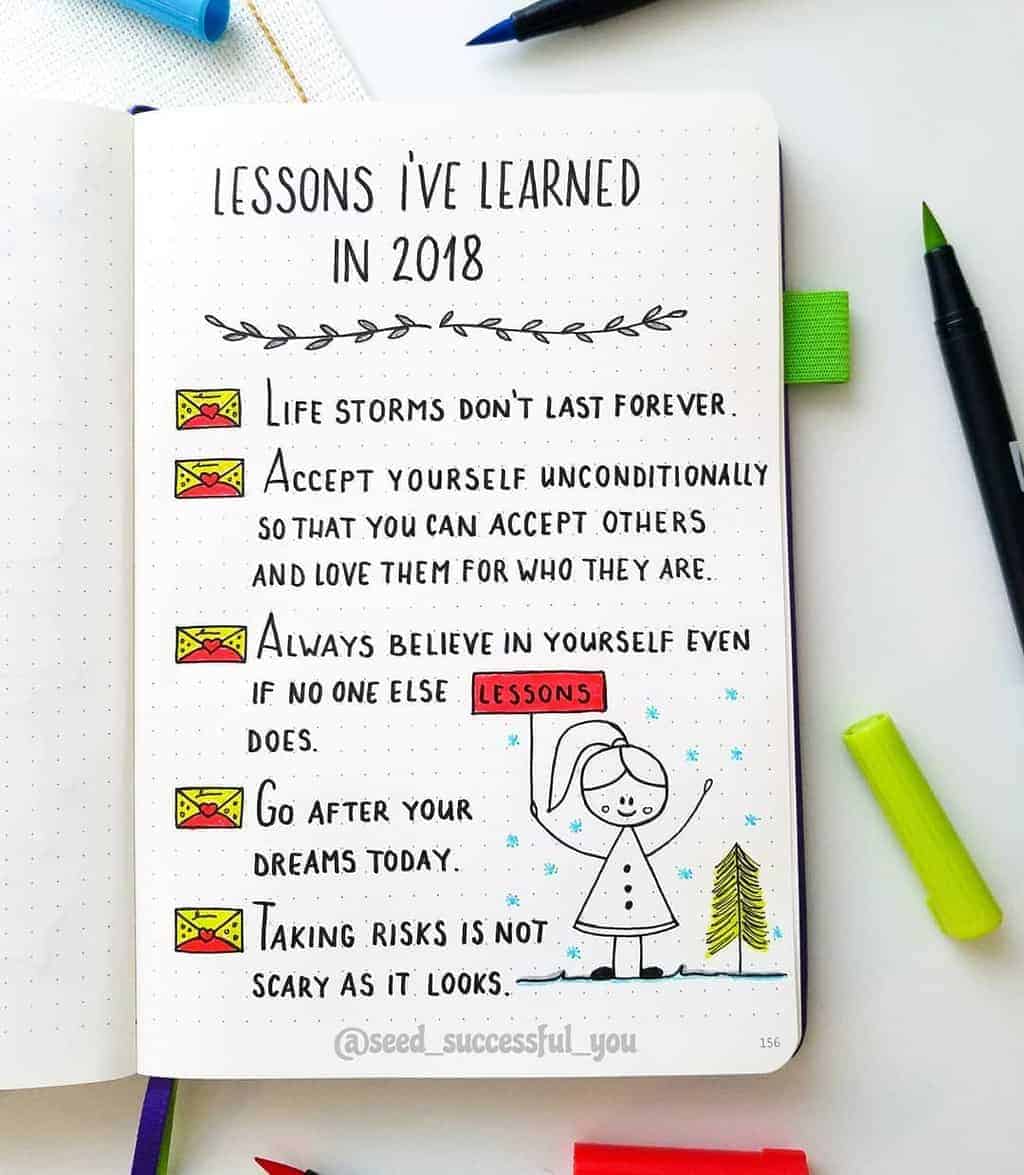 LESSONS I'VE LEARNED
IN 2018
LIFE STORMS DON'T LAST FOREVER.
ACCEPT YOURSELF UNCONDITIONALLY
SO THAT YOU CAN ACCEPT OTHERS
AND LOVE THEM FOR WHO THEY ARE.
ALWAYS BELIEVE IN YOURSELF EVEN
IF NO ONE ELSE
LESSONS
DOES.
GO AFTER YOUR
DREAMS TODAY.
TAKING RISKS IS NOT
SCARY AS IT LOOKS.
@seed_successful_you
156